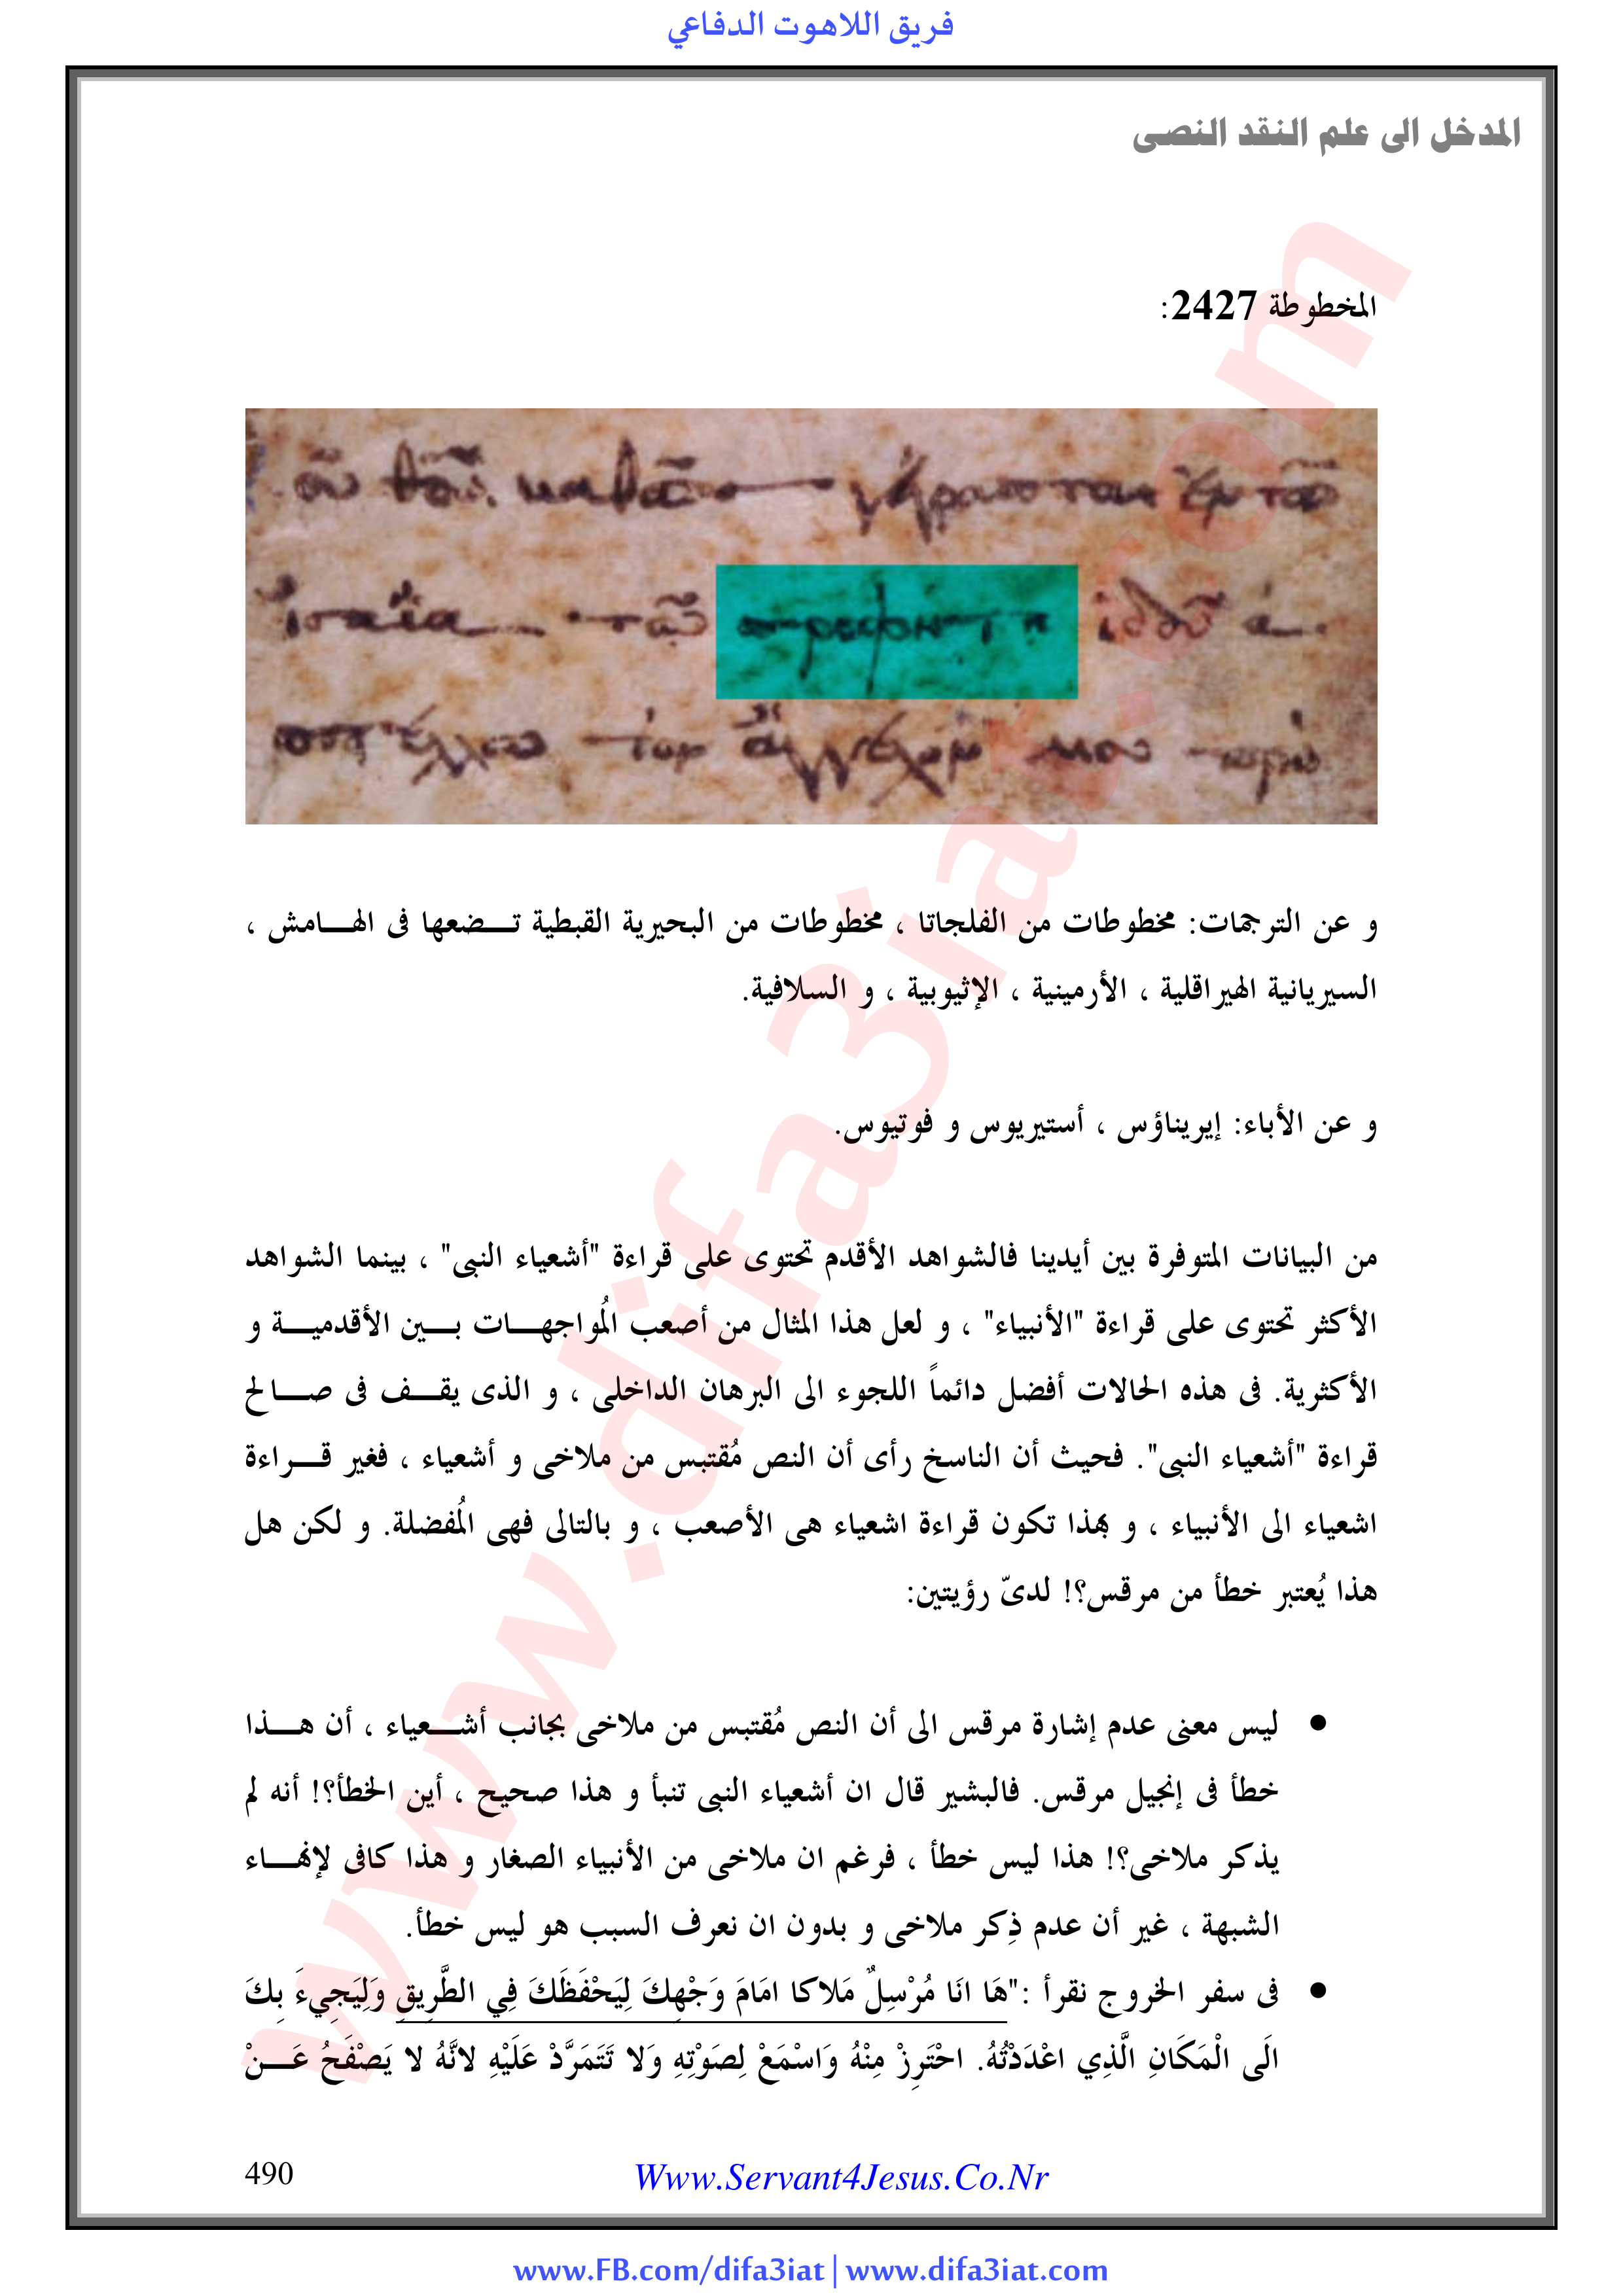 فريق اللاهوت الدفاعي
المدخل الى علم النقد النصى
المخطوطة 2427:
و عن الترجمات: مخطوطات من الفلجاتا ، مخطوطات من البحيرية القبطية تـــضعها فى الهـــامش ،
السيريانية الهيراقلية ، الأرمينية ، الإثيوبية ، و السلافية.
و عن الأباء: إيريناؤس ، أستيريوس و فوتيوس.
من البيانات المتوفرة بين أيدينا فالشواهد الأقدم تحتوى على قراءة "أشعياء النبى" ، بينما الشواهد
الأكثر تحتوى على قراءة "الأنبياء" ، و لعل هذا المثال من أصعب المُواجهـــات بـــين الأقدميـــة و
الأكثرية. فى هذه الحالات أفضل دائماً اللجوء الى البرهان الداخلى ، و الذى يقـــف فى صـــالح
قراءة "أشعياء النبى". فحيث أن الناسخ رأى أن النص مُقتبس من ملاخى و أشعياء ، فغير قـــراءة
اشعياء الى الأنبياء ، و بهذا تكون قراءة اشعياء هى الأصعب ، و بالتالى فهى المُفضلة. و لكن هل
هذا يُعتبر خطأ من مرقس؟! لدىّ رؤيتين:
● ليس معنى عدم إشارة مرقس الى أن النص مُقتبس من ملاخى بجانب أشـــعياء ، أن هـــذا
خطأ فى إنجيل مرقس. فالبشير قال ان أشعياء النبى تنبأ و هذا صحيح ، أين الخطأ؟! أنه لم
يذكر ملاخى؟! هذا ليس خطأ ، فرغم ان ملاخى من الأنبياء الصغار و هذا كافى لإنهـــاء
الشبهة ، غير أن عدم ذِكر ملاخى و بدون ان نعرف السبب هو ليس خطأ.
● فى سفر الخروج نقرأ :"هَا انَا مُرْسِلٌ مَلاكا امَامَ وَجْهِكَ لِيَحْفَظَكَ فِي الطَّرِيقِ وَلِيَجِيءَ بِكَ
الَى الْمَكَانِ الَّذِي اعْدَدْتُهُ. احْتَرِزْ مِنْهُ وَاسْمَعْ لِصَوْتِهِ وَلا تَتَمَرَّدْ عَلَيْهِ لانَّهُ لا يَصْفَحُ عَـــنْ
490
Www.Servant4Jesus.Co.Nr
www.FB.com/difa3iat | www.difa3iat.com
www.difa3iat.com